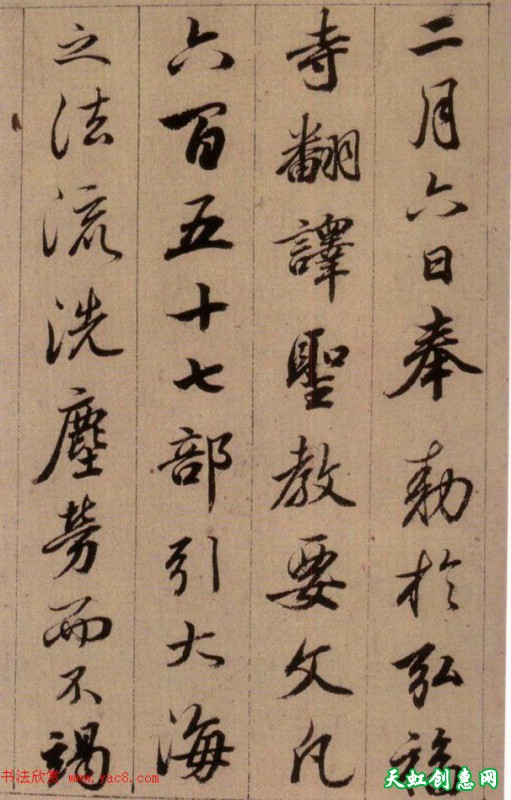 二月六日奉敕於弘福
寺翻譯聖教要文凡
六百五十七部引大海
之法流洗塵勞而不竭
书法欣赏 www.yac8.com
天虹创惠网